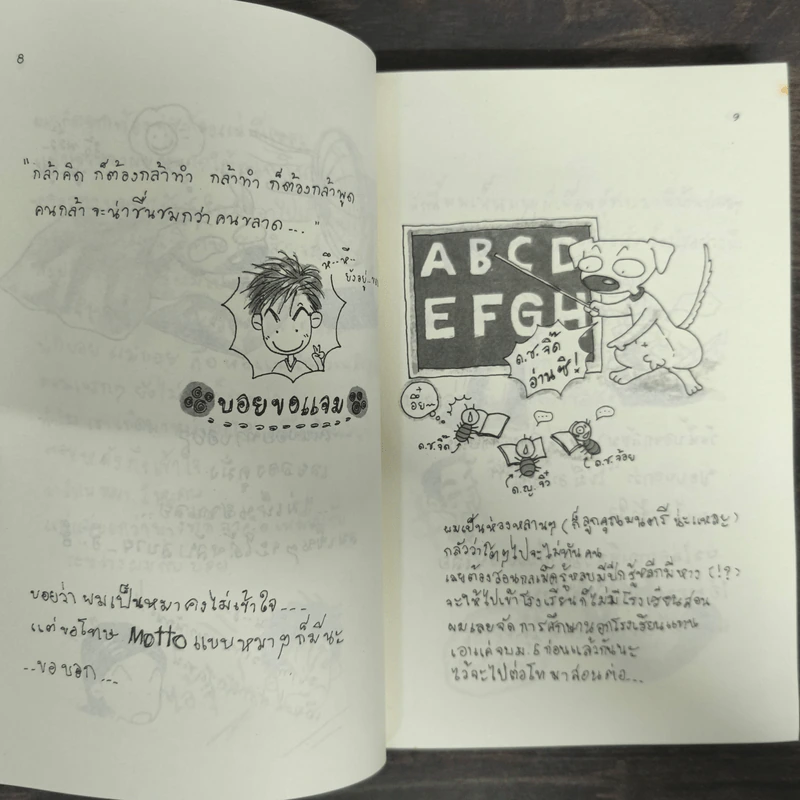 8
"กล้าคิด ก็ต้องกล้าทำ กล้าทำ ก็ต้องกล้าพูด
คนกล้า จะน่าชื่นชมกว่า คนขลาด..."
หึ..หึ..
ยังอยู่..
บอยขอแจม
บอยว่า ผมเป็นหมา คงไม่เข้าใจ...
แต่ขอโทษ Motto แบบหมาๆ ก็มีนะ
..ขอบอก...
9
ABCD
EFGH
ด.ช.จิ๊ด
อ่านซิ!
อึ๋ย~
ด.ช.จิ๊ด
ด.ญ.จิ๋ว
ด.ช.จ้อย
ผมเป็นห่วงหลานๆ (ก็ลูกคุณมนตรี น่ะแหละ)
กลัวว่าโตๆ ไปจะไม่ทันคน
เลยต้องสอนกลเม็ดรู้หลบมีปีก รู้หลีกมีหาง (!?)
จะให้ไปเข้าโรงเรียนก็ไม่มีโรงเรียนสอน
ผมเลยจัด การศึกษานอกโรงเรียนแทน
เอาแค่จบม.6 ก่อนแล้วกันนะ
ไว้จะไปต่อโท มาสอนต่อ...